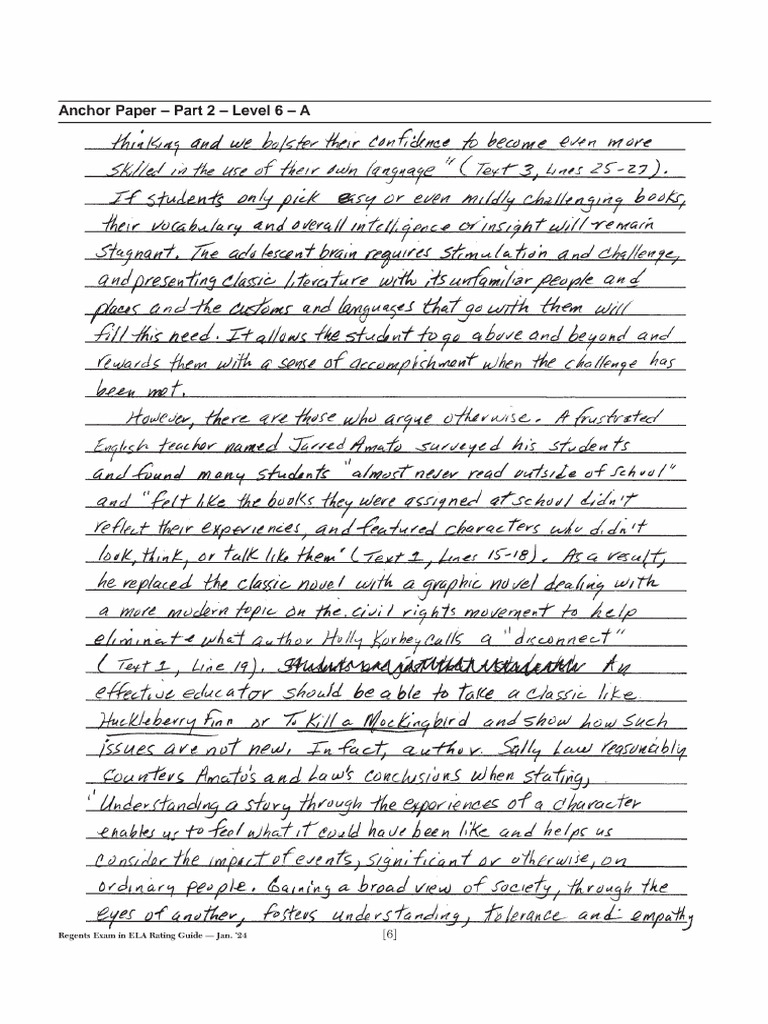 Anchor Paper – Part 2 – Level 6 – A
thinking and we bolster their confidence to become even more
skilled in the use of their own language" (Text 3, Lines 25-27).
If students only pick easy or even mildly challenging books,
their vocabulary and overall intelligence or insight will remain
stagnant. The adolescent brain requires stimulation and challenge,
and presenting classic literature with its unfamiliar people and
places and the customs and languages that go with them will
fill this need. It allows the student to go above and beyond and
rewards them with a sense of accomplishment when the challenge has
been met.
However, there are those who argue otherwise. A frustrated
English teacher named Jarred Amato surveyed his students
and found many students "almost never read outside of school"
and "felt like the books they were assigned at school didn't
reflect their experiences, and featured characters who didn't
look, think, or talk like them" (Text 1, Lines 15-18). As a result,
he replaced the classic novel with a graphic novel dealing with
a more modern topic on the civil rights movement to help
eliminate what author Holly Korbey calls a "disconnect"
(Text 1, Line 19). An
effective educator should be able to take a classic like
Huckleberry Finn or To Kill a Mockingbird and show how such
issues are not new. In fact, author. Sally Law reasonably
counters Amato's and Law's conclusions when stating,
"Understanding a story through the experiences of a character
enables us to feel what it could have been like and helps us
consider the impact of events, significant or otherwise, on
ordinary people. Gaining a broad view of society, through the
eyes of another, fosters understanding, tolerance and empathy
Regents Exam in ELA Rating Guide — Jan. '24
[6]